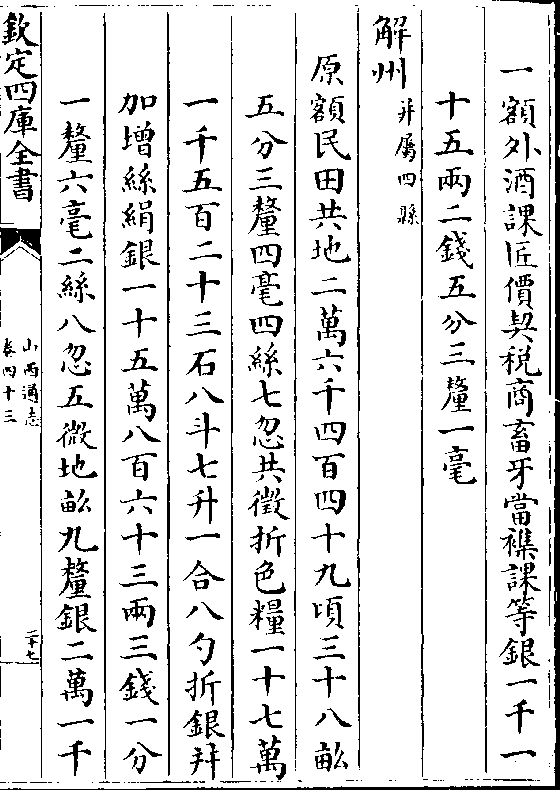 一額外酒課匠價契稅商畜牙當襍課等銀一千一
十五兩二錢五分三釐一毫
解州并屬四縣
原額民田共地二萬六千四百四十九頃三十八畝
五分三釐四毫四絲七忽共徵折色糧一十七萬
一千五百二十三石八斗七升一合八勺折銀并
加增絲絹銀一十五萬八百六十三兩三錢一分
一釐六毫二絲八忽五微地畝九釐銀二萬一千
欽定四庫全書
山西通志
卷四十三
二十七